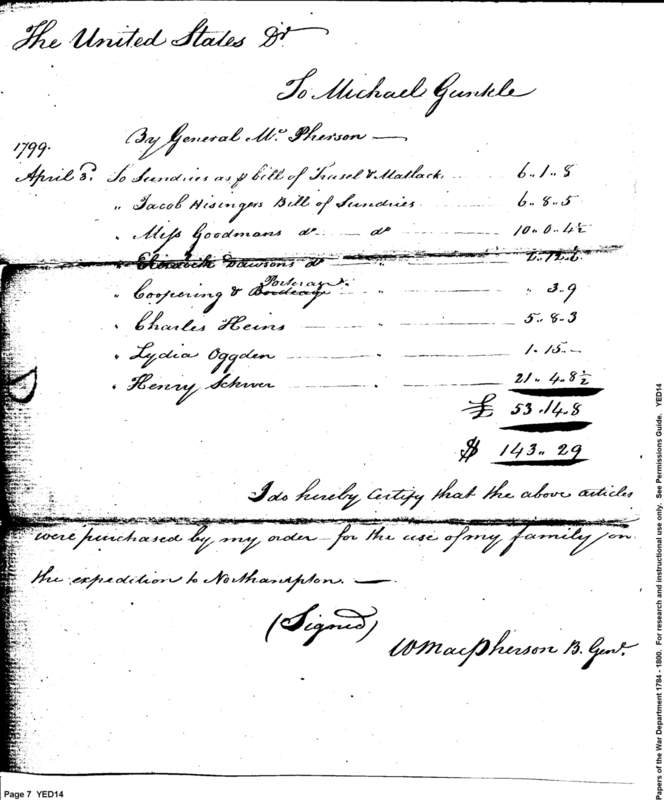 The United States Dr
To Michael Gunkle
By General Mc Pherson —
1799.
April 3d. To Sundries as ⅌ bill of Trusel & Matlack ... 6..1..8
" Jacob Hisingers Bill of Sundries ... 6..8..5
" Miss Goodmans do ... do ... 10..0..4½
" Elizabeth Dawsons do ... 2..12..6
" Coopering & Porterage ... " 3..9
" Charles Heins ... " ... 5..8..3
" Lydia Oggden ... " ... 1..15..–
" Henry Schwer ... " ... 21..4..8½
£ 53.14..8
$ 143..29
I do hereby Certify that the above articles
were purchased by my order for the use of my family on
the expedition to Northampton. —
(Signed)
WMacpherson B. Genl.
Page 7 YED14
Papers of the War Department 1784 - 1800. For research and instructional use only. See Permissions Guide. YED14